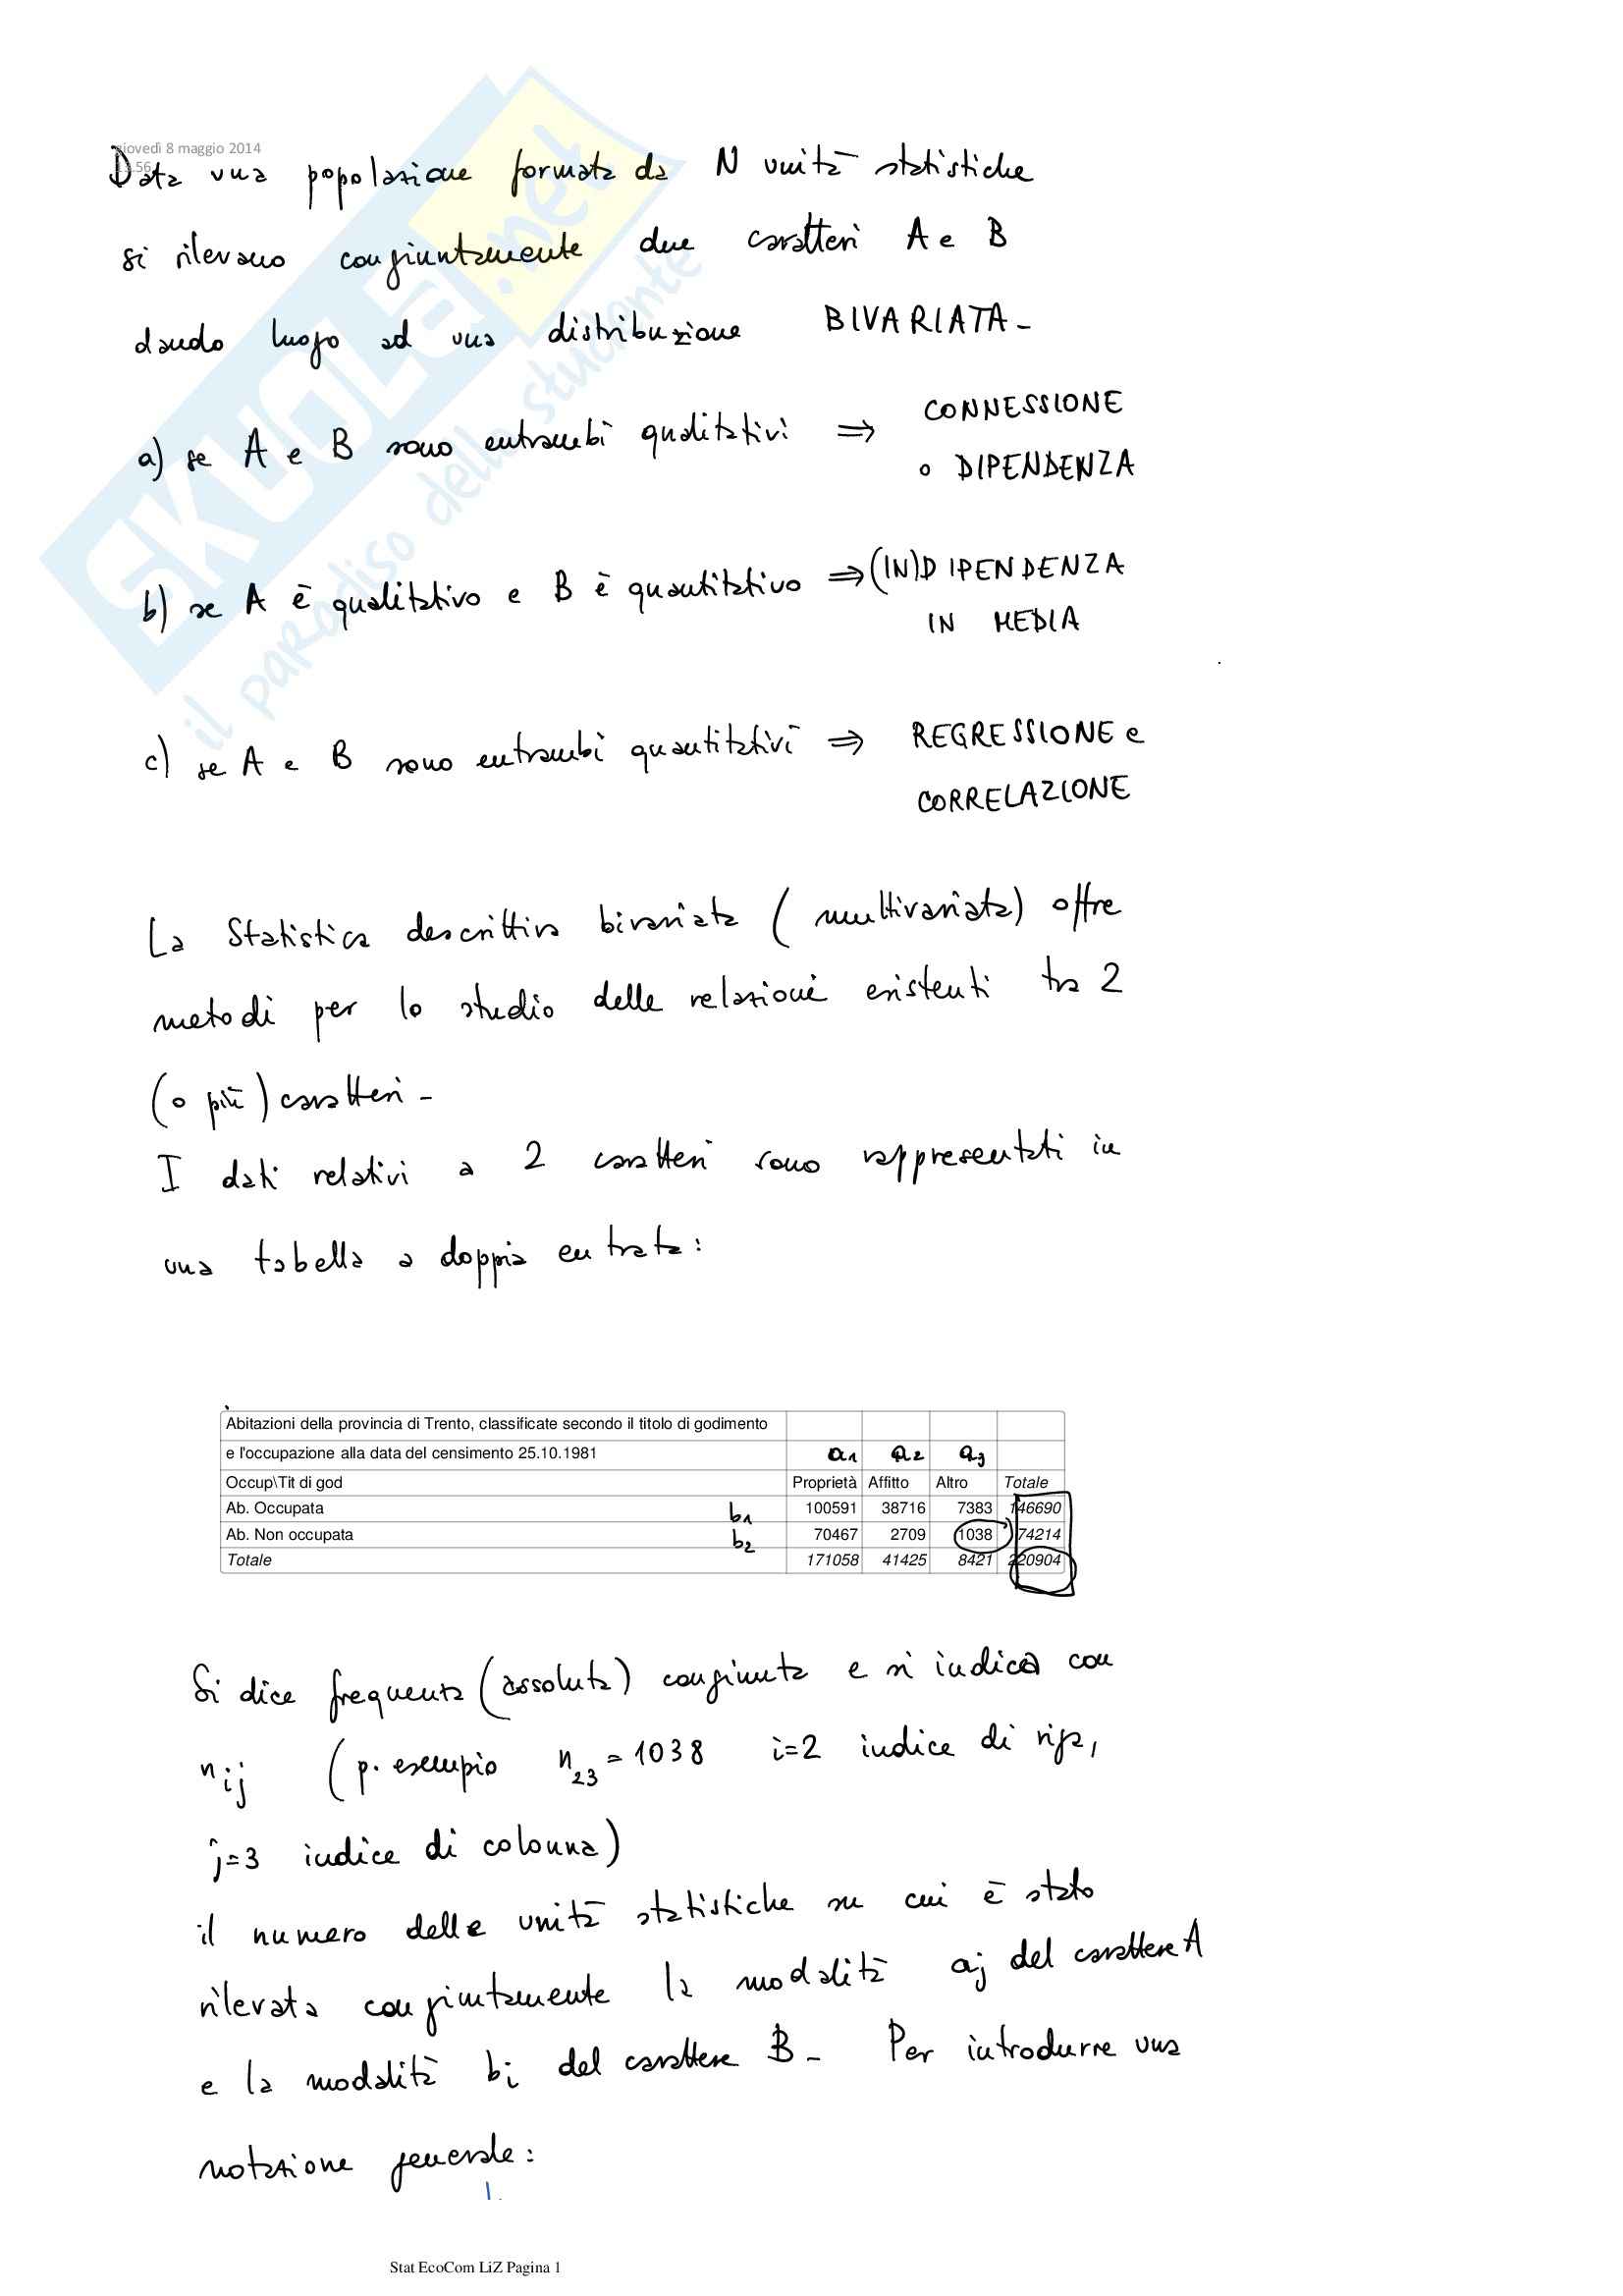 giovedì 8 maggio 2014
Data una popolazione formata da N unità statistiche
si rilevano congiuntamente due caratteri A e B
dando luogo ad una distribuzione BIVARIATA -
a) se A e B sono entrambi qualitativi ⇒ CONNESSIONE
o DIPENDENZA
b) se A è qualitativo e B è quantitativo ⇒ (IN)DIPENDENZA
IN MEDIA
c) se A e B sono entrambi quantitativi ⇒ REGRESSIONE e
CORRELAZIONE
La Statistica descrittiva bivariata (multivariata) offre
metodi per lo studio delle relazioni esistenti tra 2
(o più) caratteri -
I dati relativi a 2 caratteri sono rappresentati in
una tabella a doppia entrata:
Abitazioni della provincia di Trento, classificate secondo il titolo di godimento
e l'occupazione alla data del censimento 25.10.1981 a1 a2 a3
Occup\Tit di god Proprietà Affitto Altro Totale
Ab. Occupata b1 100591 38716 7383 146690
Ab. Non occupata b2 70467 2709 1038 74214
Totale 171058 41425 8421 220904
Si dice frequenza (assoluta) congiunta e si indica con
nij (p. esempio n23 = 1038 i=2 indice di riga,
j=3 indice di colonna)
il numero delle unità statistiche su cui è stato
rilevata congiuntamente la modalità aj del carattere A
e la modalità bi del carattere B - Per introdurre una
notazione generale:
Stat EcoCom LiZ Pagina 1
SKUOLA.net
il paradiso dello studente